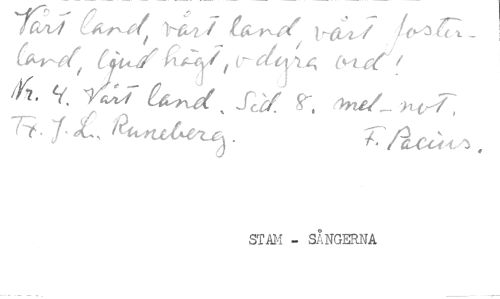 Vårt land, vårt land, vårt foster-
land, ljud högt, o dyra ord!
Nr. 4. Vårt land. Sid. 8. mel-not.
Tx. J. L. Runeberg. F. Pacius.
STAM - SÅNGERNA